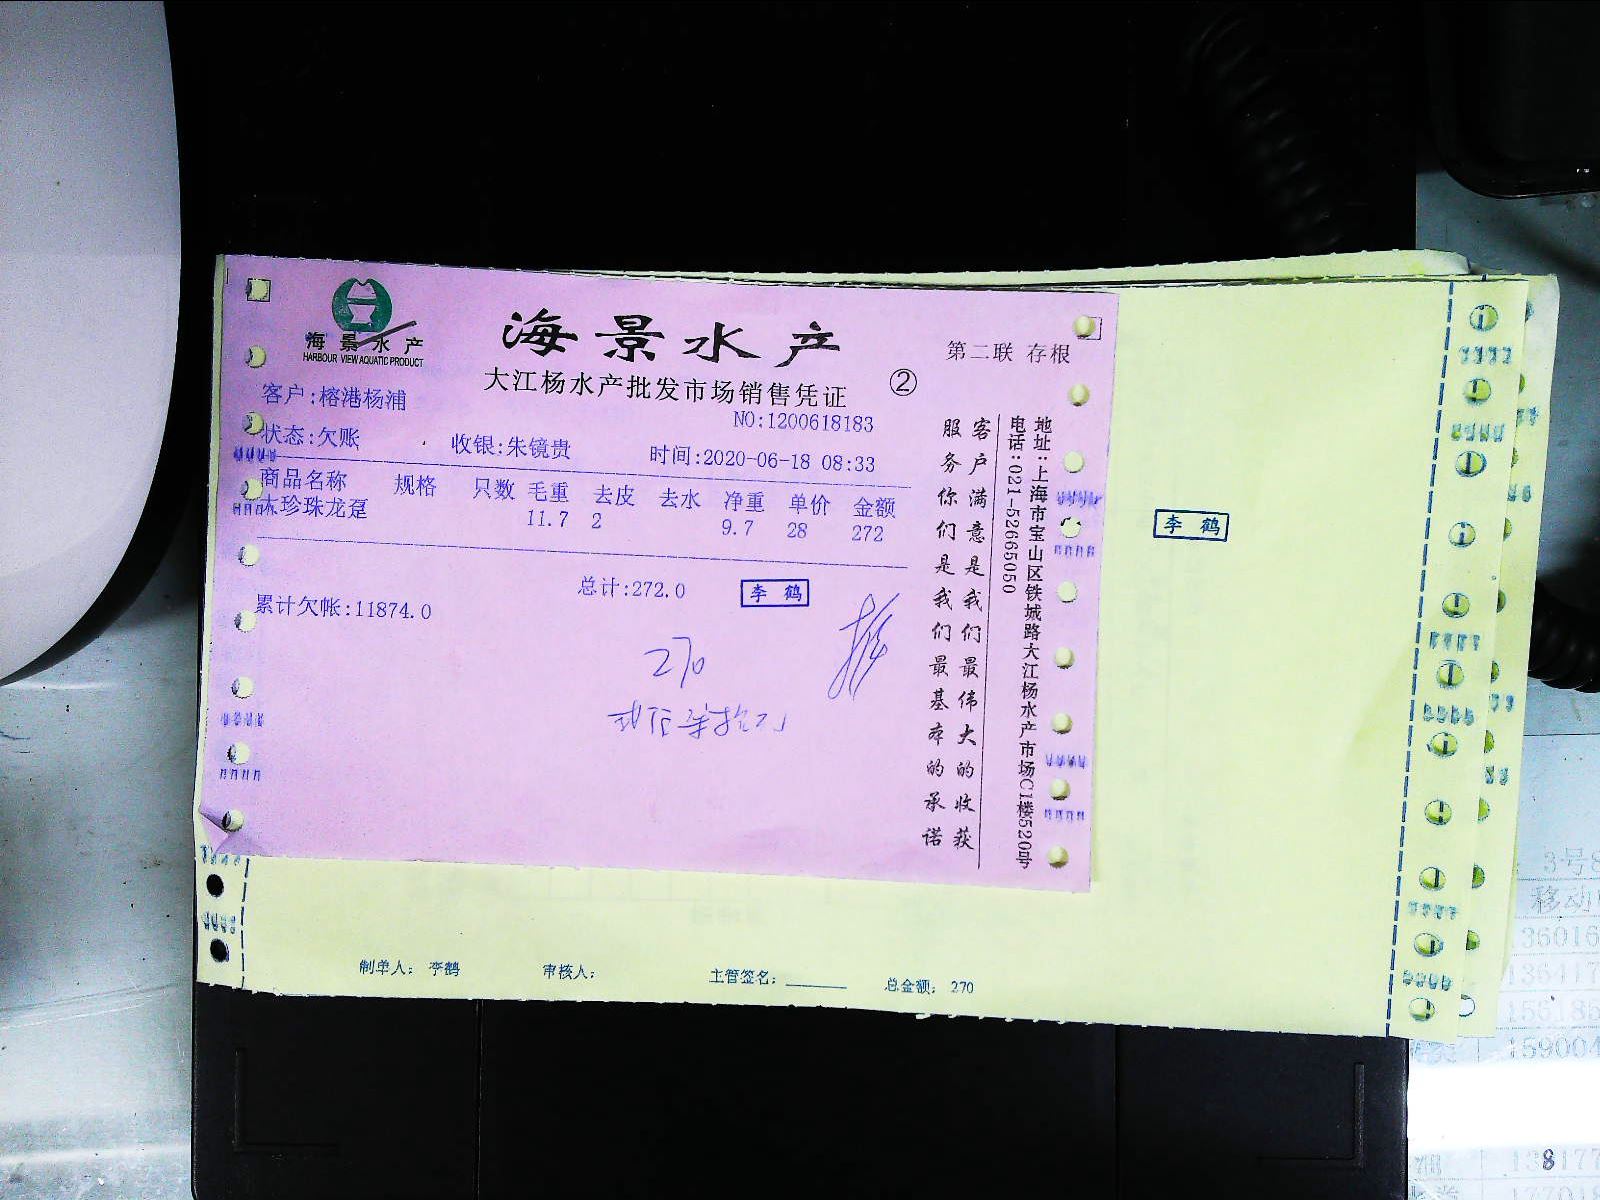 海景水产
HARBOUR VIEW AQUATIC PRODUCT
海景水产
第二联 存根
大江杨水产批发市场销售凭证 ②
客户:榕港杨浦
NO:1200618183
状态:欠账 收银:朱镜贵 时间:2020-06-18 08:33
商品名称 规格 只数 毛重 去皮 去水 净重 单价 金额
木珍珠龙趸 11.7 2 9.7 28 272
总计:272.0 李鹤
累计欠帐:11874.0
270
客户满意是我们最伟大的收获
服务你们是我们最基本的承诺
地址:上海市宝山区铁城路大江杨水产市场C1楼520号
电话:021-52665050
李鹤
制单人: 李鹤 审核人: 主管签名: 总金额: 270
3号
移动
159004